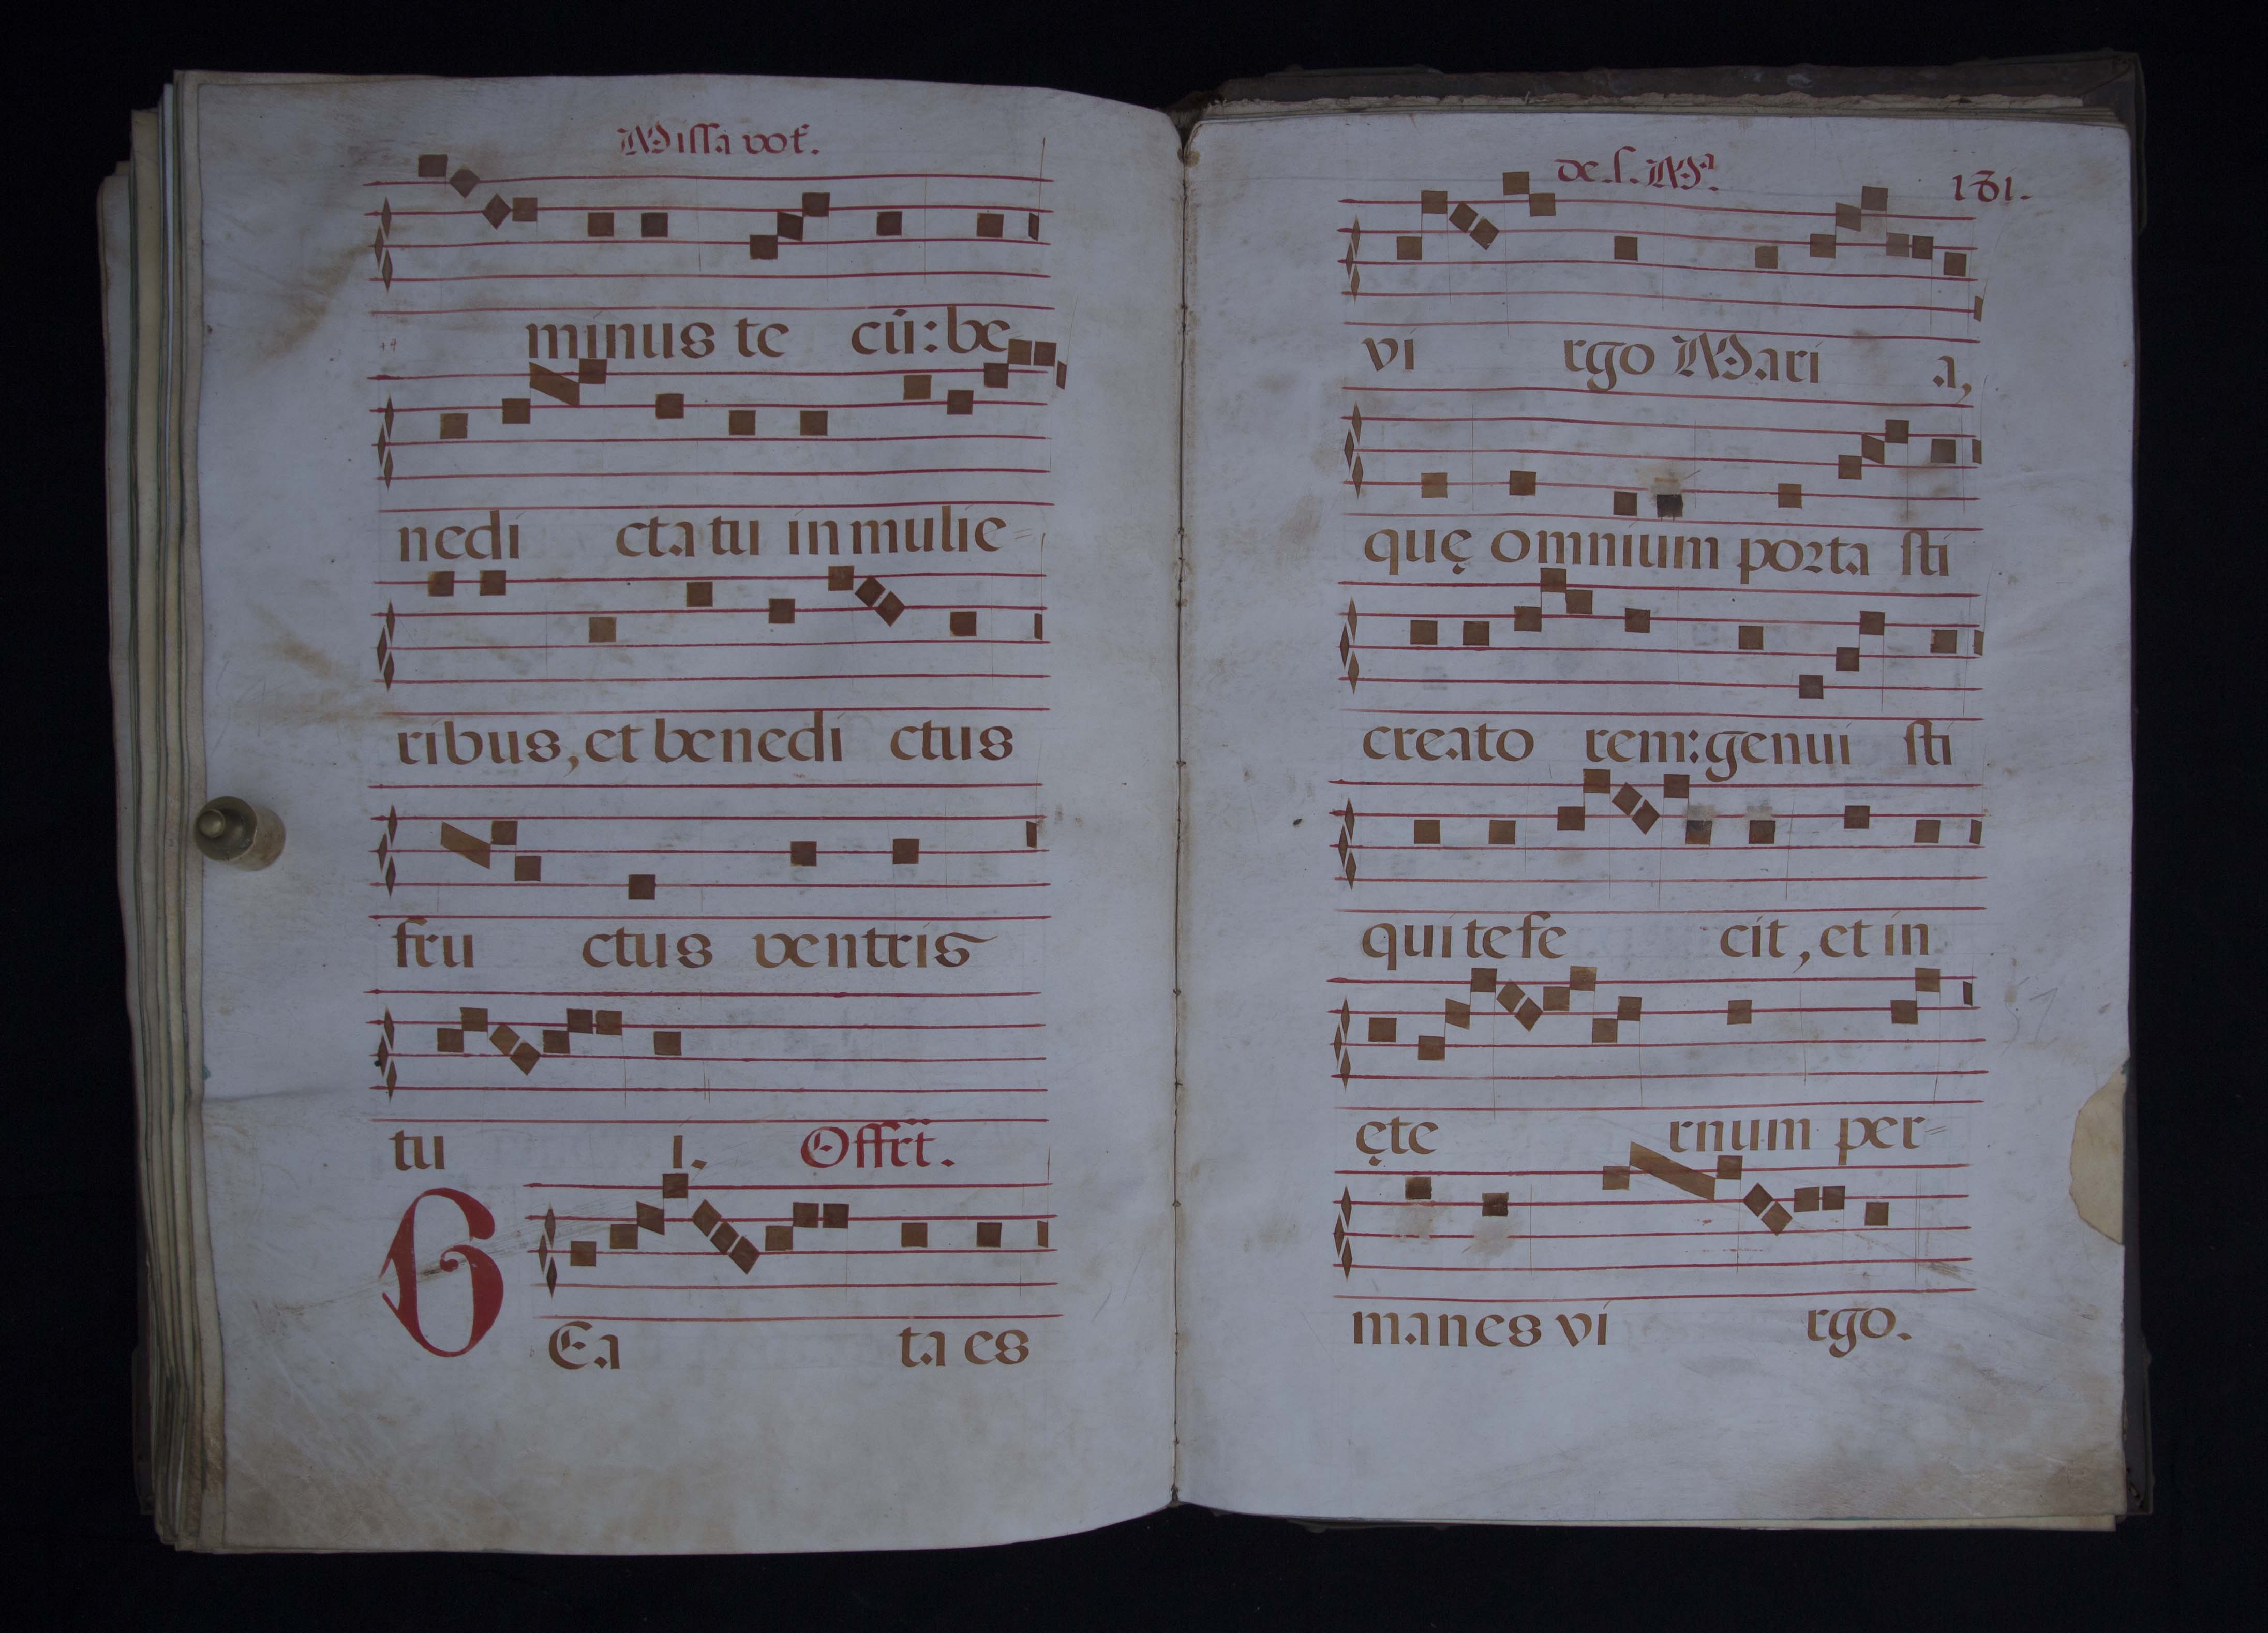 Missa vot.
minus te cū: be
nedi cta tu in mulie-
ribus, et benedi ctus
fru ctus ventris
tu i. Offrt.
B Ea ta es
de. s. Ma. 181.
vi rgo Mari a,
quę omnium porta sti
creato rem: genui sti
qui te fe cit, et in
ęte rnum per-
manes vi rgo.